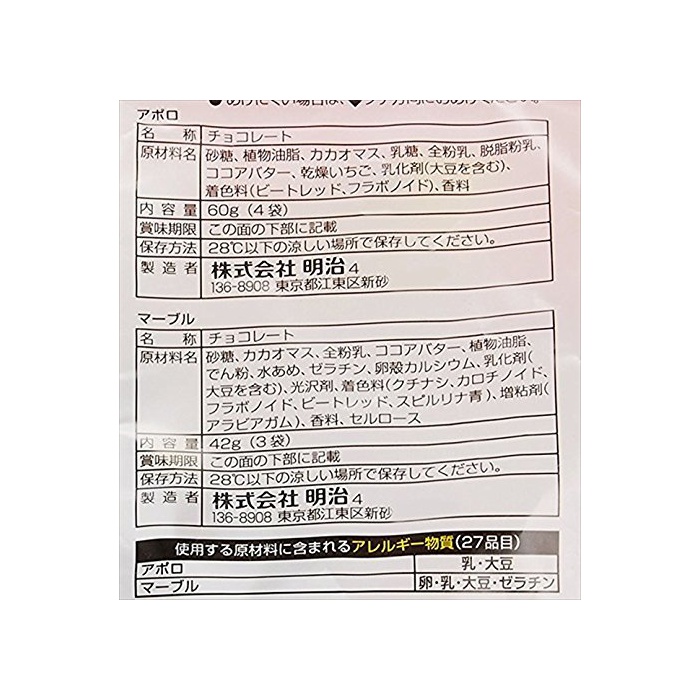 アポロ
名称 チョコレート
原材料名 砂糖、植物油脂、カカオマス、乳糖、全粉乳、脱脂粉乳、
ココアバター、乾燥いちご、乳化剤(大豆を含む)、
着色料(ビートレッド、フラボノイド)、香料
内容量 60g（4袋）
賞味期限 この面の下部に記載
保存方法 28℃以下の涼しい場所で保存してください。
製造者 株式会社 明治 4
136-8908 東京都江東区新砂
マーブル
名称 チョコレート
原材料名 砂糖、カカオマス、全粉乳、ココアバター、植物油脂、
でん粉、水あめ、ゼラチン、卵殻カルシウム、乳化剤(
大豆を含む)、光沢剤、着色料(クチナシ、カロチノイド、
フラボノイド、ビートレッド、スピルリナ青)、増粘剤(
アラビアガム)、香料、セルロース
内容量 42g（3袋）
賞味期限 この面の下部に記載
保存方法 28℃以下の涼しい場所で保存してください。
製造者 株式会社 明治 4
136-8908 東京都江東区新砂
使用する原材料に含まれるアレルギー物質(27品目)
アポロ 乳・大豆
マーブル 卵・乳・大豆・ゼラチン